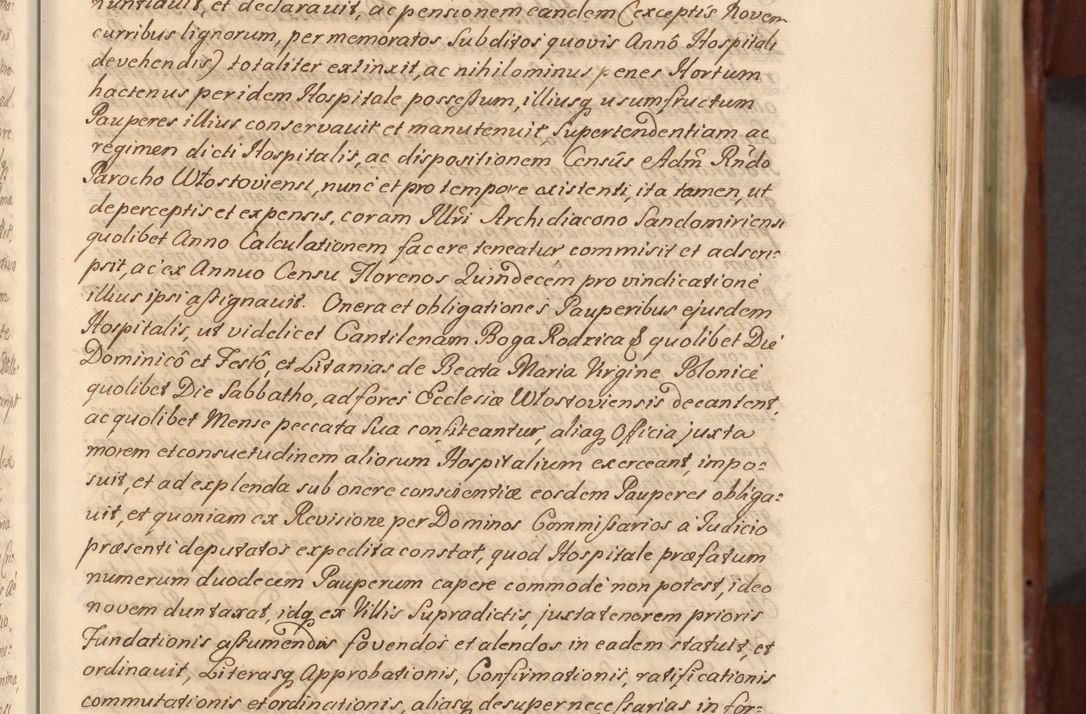 nuntiavit, et declarauit, ac pensionem eandem (exceptis Novem
curribus lignorum, per memoratos Subditos quovis Annô Hospitali
devehendis) totaliter extinxit, ac nihilominus penes Hortum
hactenus per idem Hospitale possessum, illiusq usumfructum
Pauperes illius conservauit et manutenuit, Supertendentiam ac
regimen dicti Hospitalis, ac dispositionem Censûs e Adm Rñdo
Parocho Włostoviensi, nunc et pro tempore existenti, ita tamen, ut
de perceptis et expensis, coram Illri Archidiacono Sandomiriensi
quolibet Anno Calculationem facere teneatur commisit et adscri-
psit, ac ex Annuo Censu Florenos Quindecem pro vindicatione
illius ipsi assignauit. Onera et obligationes Pauperibus ejusdem
Hospitalis, ut videlicet Cantilenam Boga Rodzica quolibet Die
Dominicô et Festô, et Litanias de Beata Maria Virgine Polonice
quolibet Die Sabbatho, ad fores Ecclesiæ Włostoviensis decantent,
ac quolibet Mense peccata Sua confiteantur, aliaq Officia juxta
morem et consuetudinem aliorum Hospitalium exerceant, impo-
suit, et ad explenda sub onere conscientiæ eosdem Pauperes obliga-
uit, et quoniam ex Revisione per Dominos Commissarios à Judicio
præsenti deputatos expedita constat, quod Hospitale præfatum
numerum duodecem Pauperum capere commode non potest, ideo
novem duntaxat, idq ex Villis Supradictis, juxta tenorem prioris
Fundationis assumendos fovendos et alendos in eadem statuit, et
ordinauit, Literasq Approbationis, Confirmationis, ratificationis
commutationis et ordinationis, aliasq desuper necessarias in for-